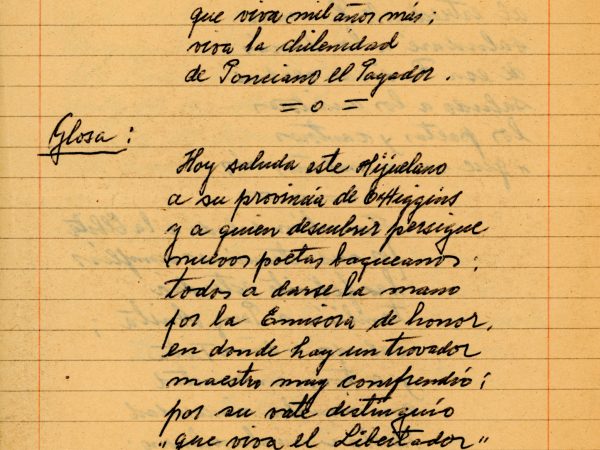 que viva mil años más;
viva la chilenidad
de Ponciano el Payador.
= o =
Glosa:
Hoy saluda este Hijuelano
a su provincia de O'Higgins
y a quien descubrir persigue
nuevos poetas baqueanos;
todos a darse la mano
por la Emisora de honor,
en donde hay un trovador
maestro muy comprendío;
por su vate distinguío
"que viva el Libertador"